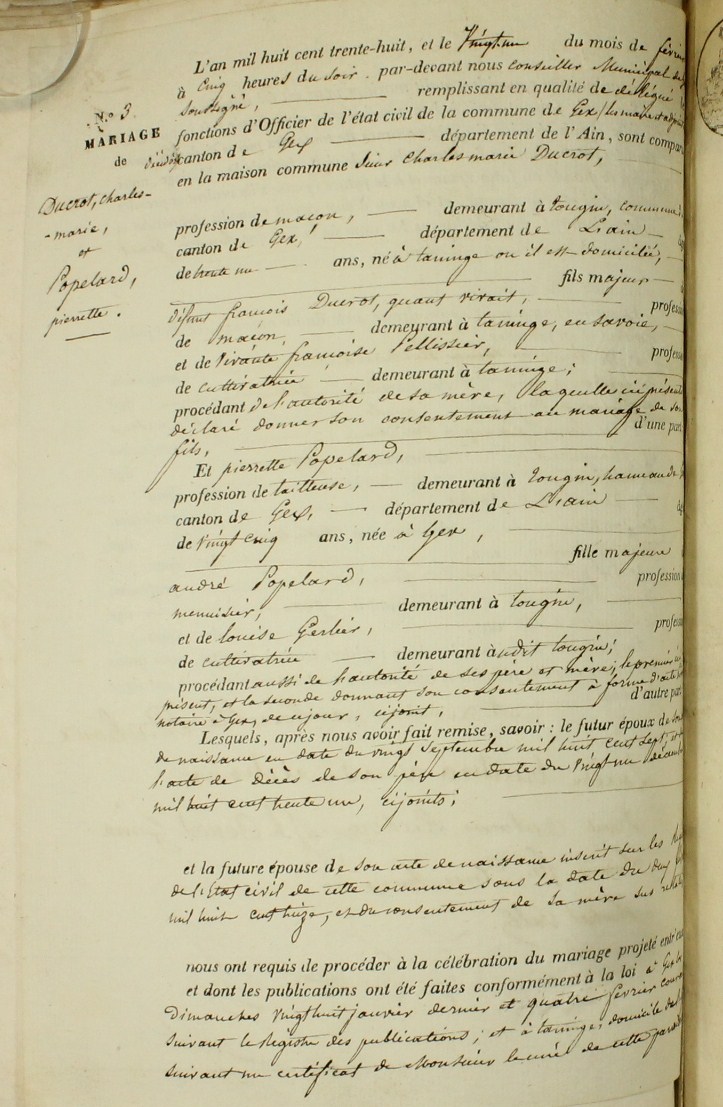 N.º 3
MARIAGE
de
Ducrot, charles-
-marie,
et
Popelard,
pierrette.
L'an mil huit cent trente-huit, et le Vingt un du mois de février
à Cinq heures du soir. par-devant nous Conseiller Municipal
soussigné, remplissant en qualité de délégué
fonctions d'Officier de l'état civil de la commune de Gex
canton de Gex département de l'Ain, sont compar
en la maison commune Sieur Charles marie Ducrot,
profession de maçon, demeurant à tougin, commune
canton de Gex, département de L'ain
de trente un ans, né à taninge ou il est domicilié,
fils majeur
défunt françois Ducrot, quant vivait, profess
de maçon, demeurant à taninge, en savoie,
et de vivante françoise Pellissier, profess
de cultivatrice demeurant à taninge;
procédant de l'autorité de sa mère, laquelle ici présente
déclaré donner son consentement au mariage de son
fils, d'une part
Et pierrette Popelard,
profession de tailleuse, demeurant à tougin, hameau de
canton de Gex, département de L'ain
de vingt cinq ans, née à Gex,
fille majeure
andré Popelard, profession
menuisier, demeurant à tougin,
et de louise Gerlier, profess
de cultivatrice demeurant à udit tougin;
procédant aussi de l'autorité de ses père et mère; le premier ici
présent, et la seconde donnant son consentement à forme d'acte
notaire à Gex, de cejour, cijoint, d'autre part
Lesquels, après nous avoir fait remise, savoir : le futur époux de son
de naissance en date du vingt Septembre mil huit cent sept, et
l'acte de décès de son père en date du vingt un décembre
mil huit cent trente un, cijoints;
et la future épouse de son acte de naissance inscrit sur les
de l'Etat civil de cette commune sous la date du
mil huit cent treize, et du consentement de sa mère sus
nous ont requis de procéder à la célébration du mariage projeté entr'eux
et dont les publications ont été faites conformément à la loi à Gex les
Dimanches vingt huit janvier dernier et quatre février courant
suivant le Registre des publications; et à taninge, domicile
suivant un certificat de Monsieur le curé de cette paroisse